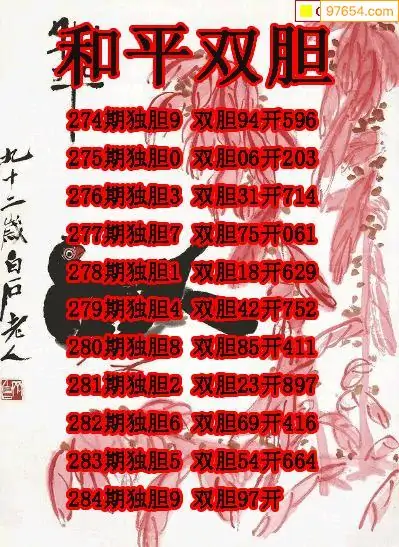 97654.com
和平双胆
274期独胆9 双胆94开596
275期独胆0 双胆06开203
276期独胆3 双胆31开714
277期独胆7 双胆75开061
278期独胆1 双胆18开629
279期独胆4 双胆42开752
280期独胆8 双胆85开411
281期独胆2 双胆23开897
282期独胆6 双胆69开416
283期独胆5 双胆54开664
284期独胆9 双胆97开
九十二岁白石老人